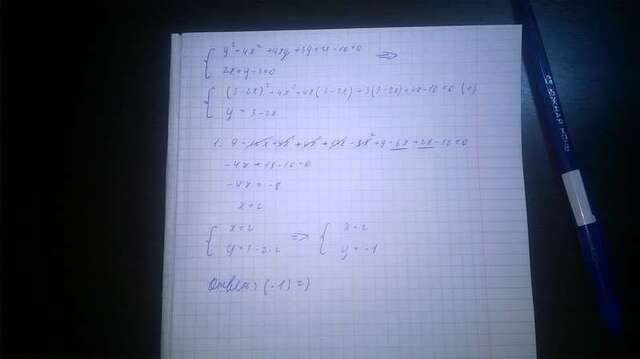 y² + 4x² + 4xy + 3y + 2x - 10 = 0 =>
2x + y - 3 = 0
(3-2x)² + 4x² + 4x(3-2x) + 3(3-2x) + 2x - 10 = 0 (1)
y = 3 - 2x
1. 9 - 12x + 4x² + 4x² + 12x - 8x² + 9 - 6x + 2x - 10 = 0
-4x + 18 - 10 = 0
-4x = -8
x = 2
x = 2 => x = 2
y = 3 - 2·2 y = -1
Ответ: